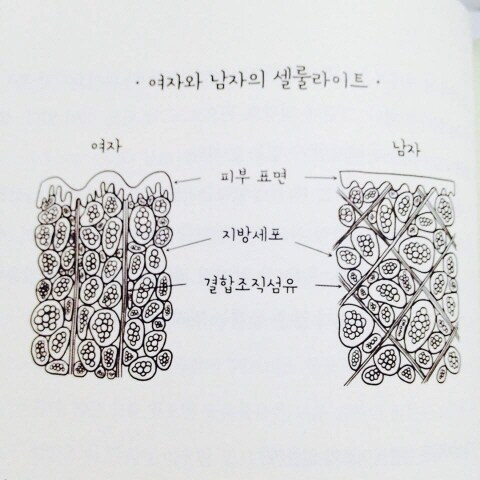 · 여자와 남자의 셀룰라이트 ·
여자
남자
피부 표면
지방세포
결합조직섬유